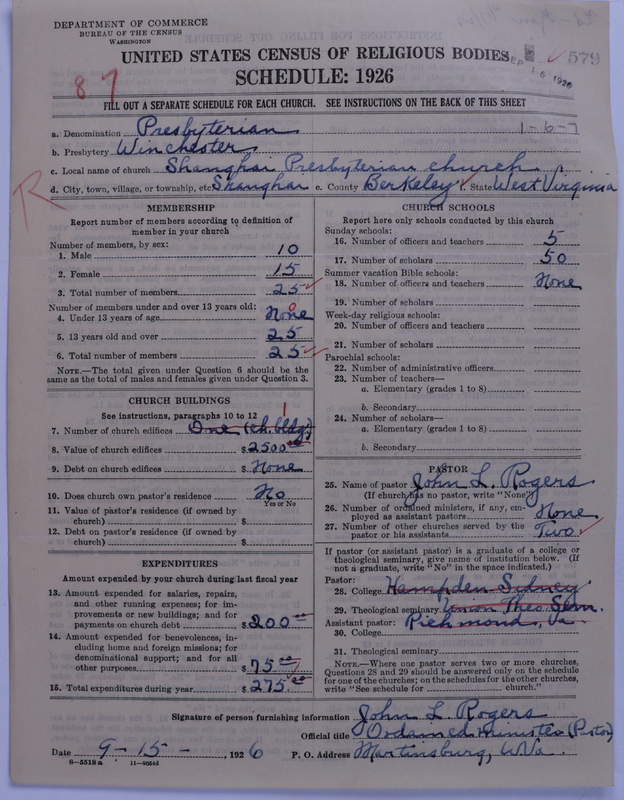 DEPARTMENT OF COMMERCE
BUREAU OF THE CENSUS
WASHINGTON
UNITED STATES CENSUS OF RELIGIOUS BODIES
SCHEDULE: 1926
SEP 16 1926
579
87
FILL OUT A SEPARATE SCHEDULE FOR EACH CHURCH. SEE INSTRUCTIONS ON THE BACK OF THIS SHEET
a. Denomination Presbyterian 1-6-7
b. Presbytery Winchester
c. Local name of church Shanghai Presbyterian church
d. City, town, village, or township, etc. Shanghai e. County Berkeley f. State West Virginia
R
MEMBERSHIP
Report number of members according to definition of
member in your church
Number of members, by sex:
1. Male 10
2. Female 15
3. Total number of members 25
Number of members under and over 13 years old:
4. Under 13 years of age None 0
5. 13 years old and over 25
6. Total number of members 25
NOTE.—The total given under Question 6 should be the
same as the total of males and females given under Question 3.
CHURCH BUILDINGS
See instructions, paragraphs 10 to 12
7. Number of church edifices One (ch. bldg) 1
8. Value of church edifices $ 2500.00
9. Debt on church edifices $ None
10. Does church own pastor's residence No
Yes or No
11. Value of pastor's residence (if owned by
church) $
12. Debt on pastor's residence (if owned by
church) $
EXPENDITURES
Amount expended by your church during last fiscal year
13. Amount expended for salaries, repairs,
and other running expenses; for im-
provements or new buildings; and for
payments on church debt $ 200
14. Amount expended for benevolences, in-
cluding home and foreign missions; for
denominational support; and for all
other purposes $ 75.00
15. Total expenditures during year $ 275.00
CHURCH SCHOOLS
Report here only schools conducted by this church
Sunday schools:
16. Number of officers and teachers 5
17. Number of scholars 50
Summer vacation Bible schools:
18. Number of officers and teachers None
19. Number of scholars
Week-day religious schools:
20. Number of officers and teachers
21. Number of scholars
Parochial schools:
22. Number of administrative officers
23. Number of teachers—
a. Elementary (grades 1 to 8)
b. Secondary
24. Number of scholars—
a. Elementary (grades 1 to 8)
b. Secondary
PASTOR
25. Name of pastor John L. Rogers
(If church has no pastor, write "None")
26. Number of ordained ministers, if any, em-
ployed as assistant pastors None
27. Number of other churches served by the
pastor or his assistants Two
If pastor (or assistant pastor) is a graduate of a college or
theological seminary, give name of institution below. (If
not a graduate, write "No" in the space indicated.)
Pastor:
28. College Hampden Sidney
29. Theological seminary Union Theo. Sem.
Assistant pastor: Richmond, Va.
30. College
31. Theological seminary
NOTE.—Where one pastor serves two or more churches,
Questions 28 and 29 should be answered only on the schedule
for one of the churches; on the schedules for the other churches,
write "See schedule for church."
Signature of person furnishing information John L Rogers
Official title Ordained Minister (Pastor)
Date 9-15- 1926 P. O. Address Martinsburg, W.Va.
8-5518a 11-9056d